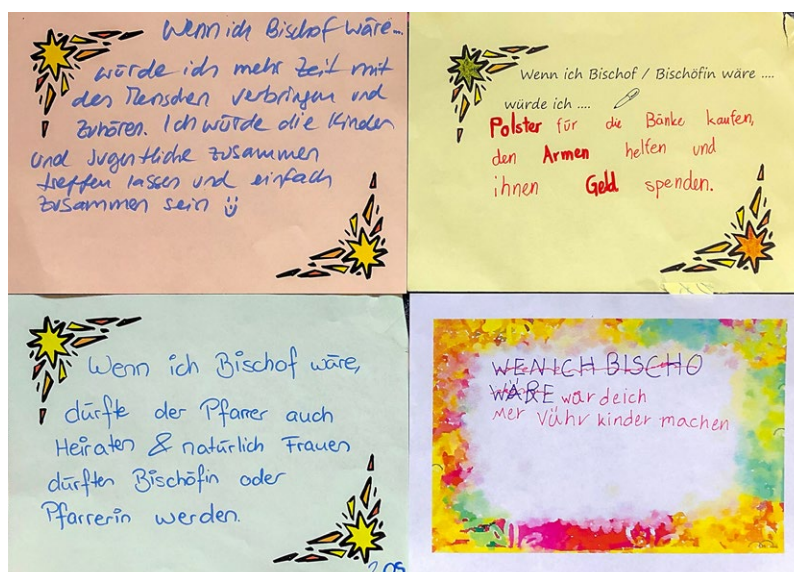 Wenn ich Bischof wäre...
würde ich mehr Zeit mit
den Menschen verbringen und
zuhören. Ich würde die Kinder
und Jugentliche zusammen
treffen lassen und einfach
zusammen sein
Wenn ich Bischof / Bischöfin wäre ....
würde ich ....
Polster für die Bänke kaufen,
den Armen helfen und
ihnen Geld spenden.
Wenn ich Bischof wäre,
dürfte der Pfarrer auch
Heiraten & natürlich Frauen
dürften Bischöfin oder
Pfarrerin werden.
WENICH BISCHO
WÄRE würdeich
mer Vühr kinder machen